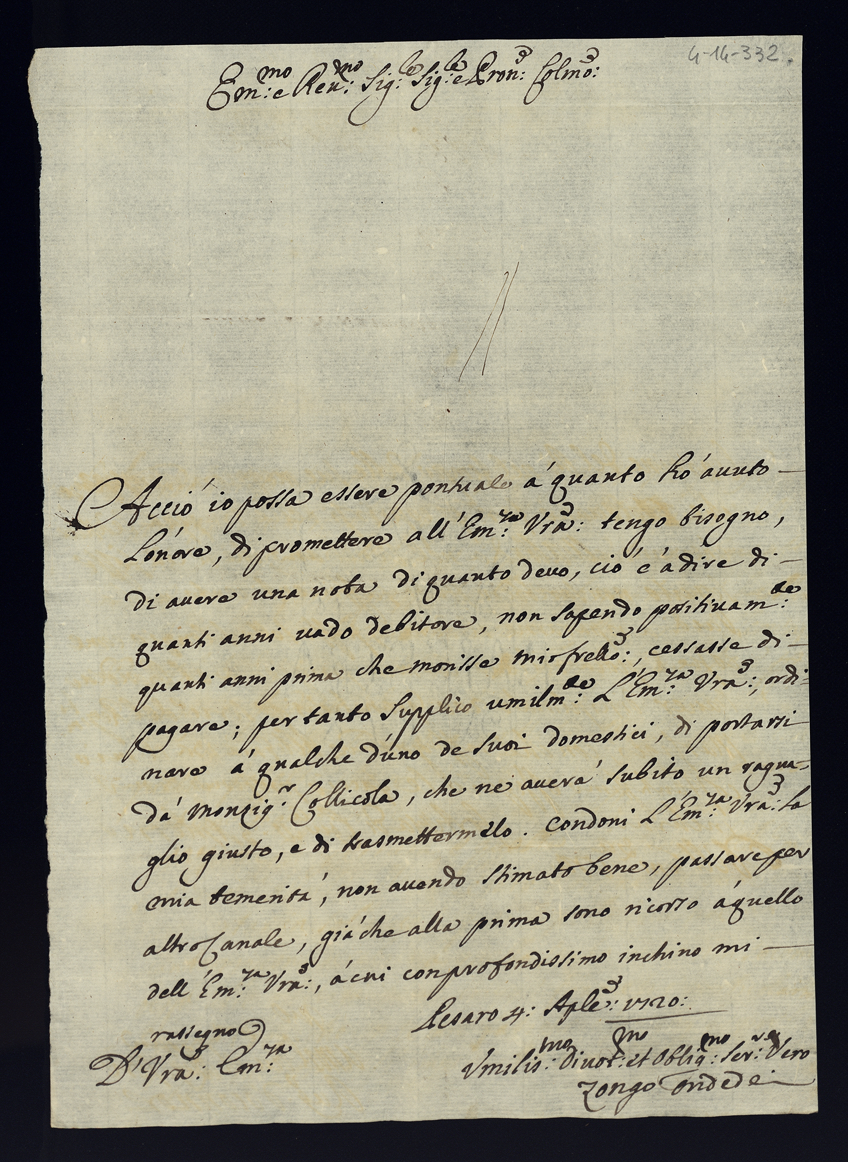 4-14-332.
Em:mo e Reu:mo Sig:re Sig:re e Pron:e Colmo:
Acció io possa essere pontuale á quanto hó auuto —
L'onore, di promettere all'Em:za Vrã: tengo bisogno,
di auere una nota di quanto deuo, ció é á dire di —
quanti anni uado debitore, non sapendo positiuam:te
quanti anni prima che morisse mio frello:, cessasse di —
pagare; per tanto Supplico umilm:te L'Em:za Vrã:, ordi-
nare á qualche d'úno de Suoi domestici, di portarsi
dá Monsig:r Collicola, che ne auerá subito un ragua-
glio giusto, e di trasmettermelo. Condoni L'Em:za Vrã: la
mia temeritá, non auendo stimato bene, passare per
altro Canale, giá che alla prima sono ricorso á quello
dell'Em:za Vrã:, á cui con profondissimo inchino mi —
rassegno
Pesaro 4: Aple: 1720:
D' Vrã: Em:za
Vmilis:mo Diuot:mo et Obliq:mo Ser:re Vero
Zongo Ondedei